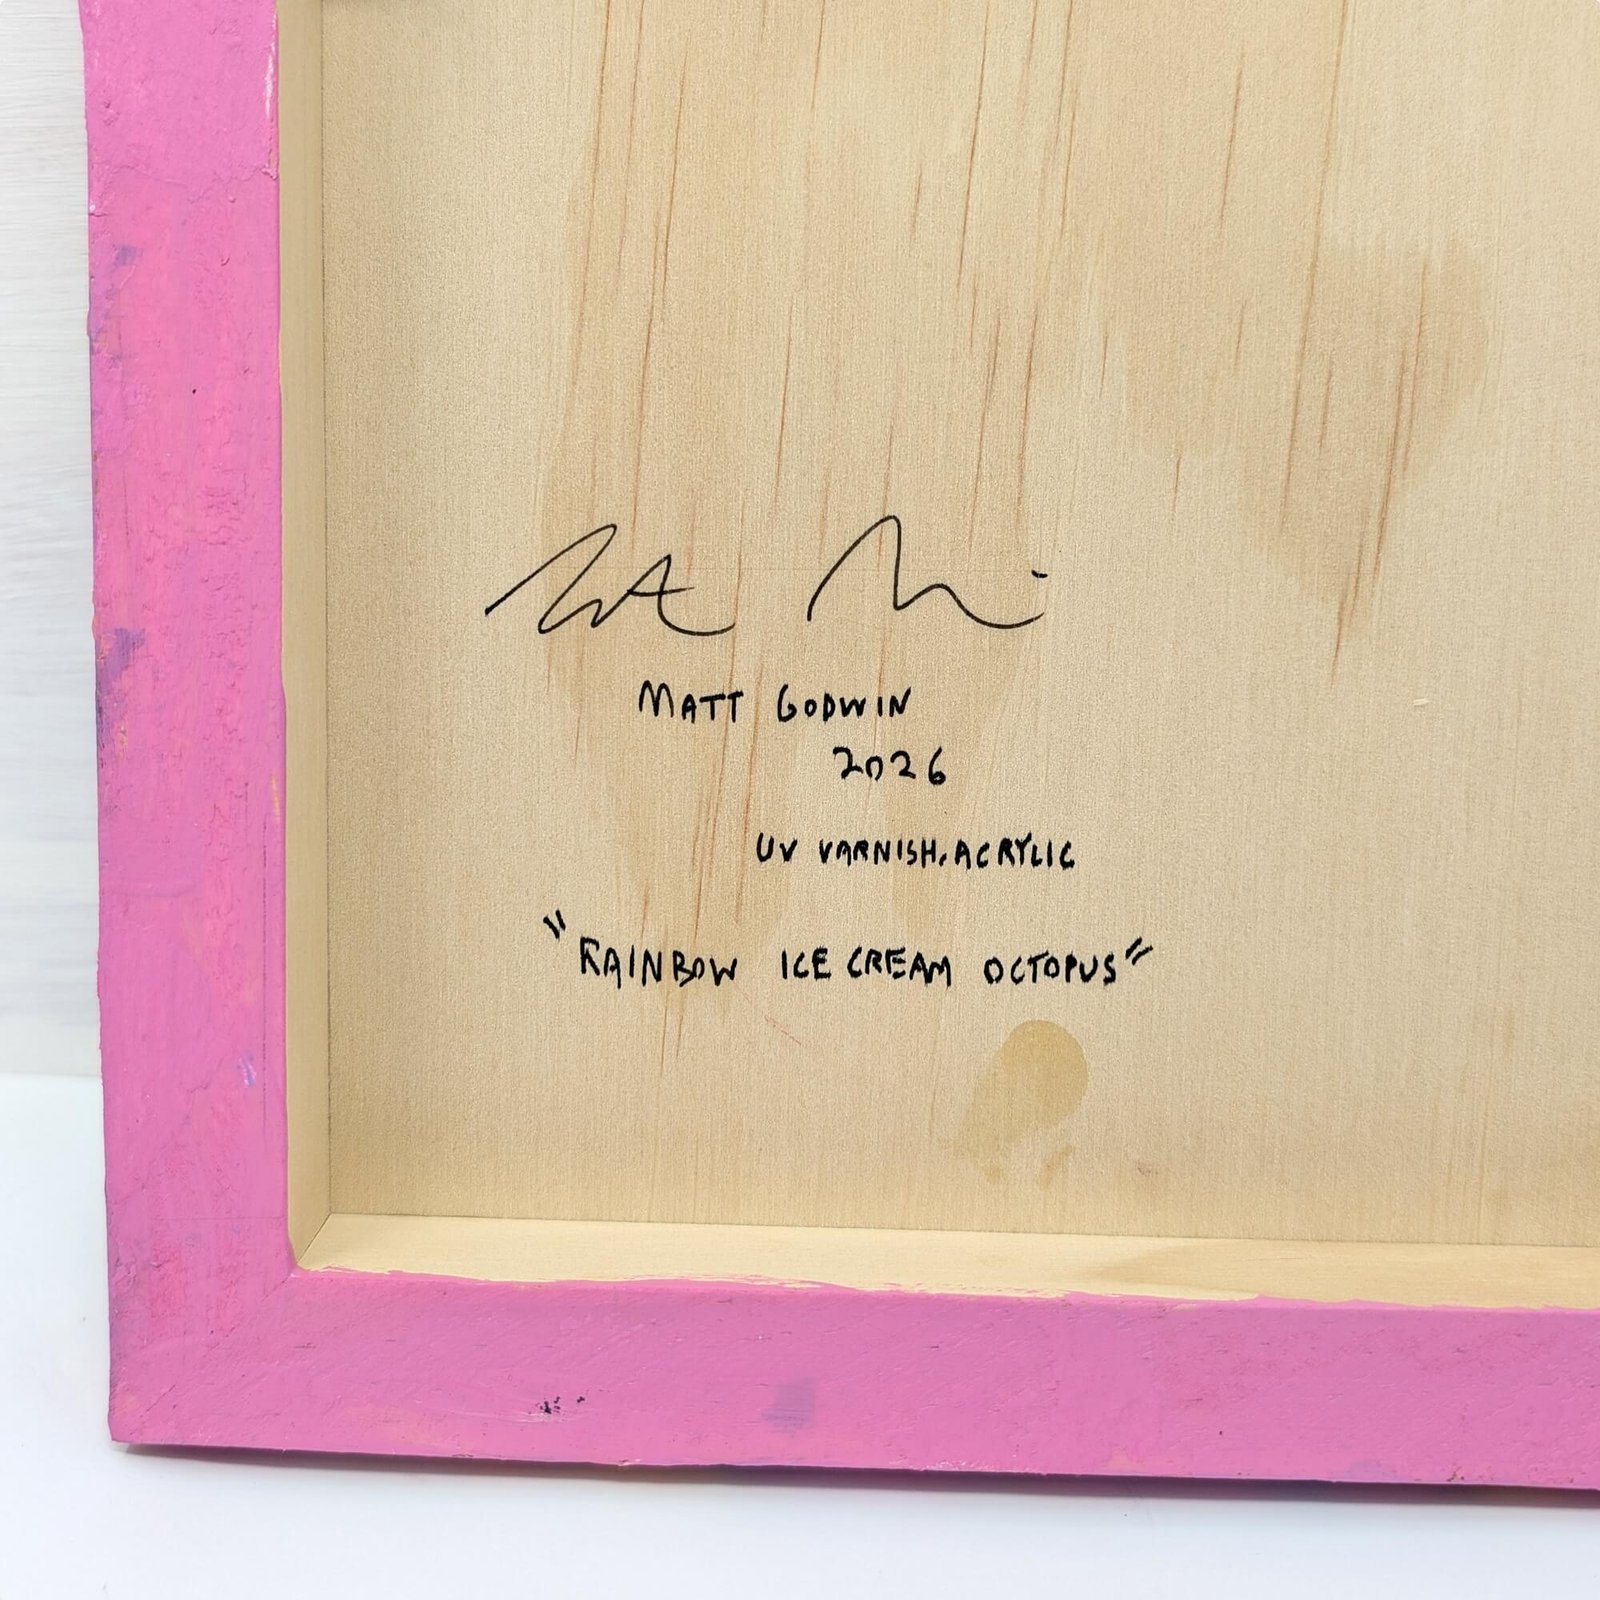 MATT GODWIN
2026
UV VARNISH, ACRYLIC
"RAINBOW ICE CREAM OCTOPUS"